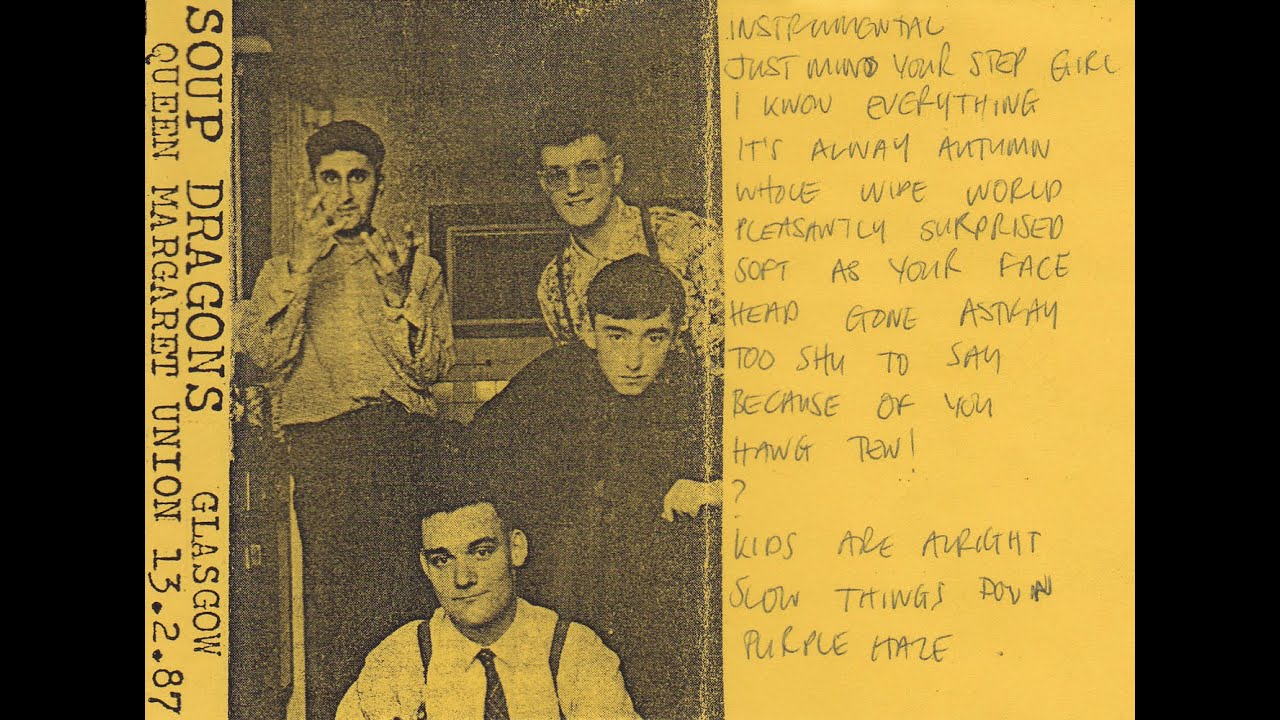 SOUP DRAGONS GLASGOW
QUEEN MARGARET UNION 13.2.87
INSTRUMENTAL
JUST MIND YOUR STEP GIRL
I KNOW EVERYTHING
IT'S ALWAY AUTUMN
WHOLE WIDE WORLD
PLEASANTLY SURPRISED
SOFT AS YOUR FACE
HEAD GONE ASTRAY
TOO SHY TO SAY
BECAUSE OF YOU
HANG TEN!
?
KIDS ARE ALRIGHT
SLOW THINGS DOWN
PURPLE HAZE .